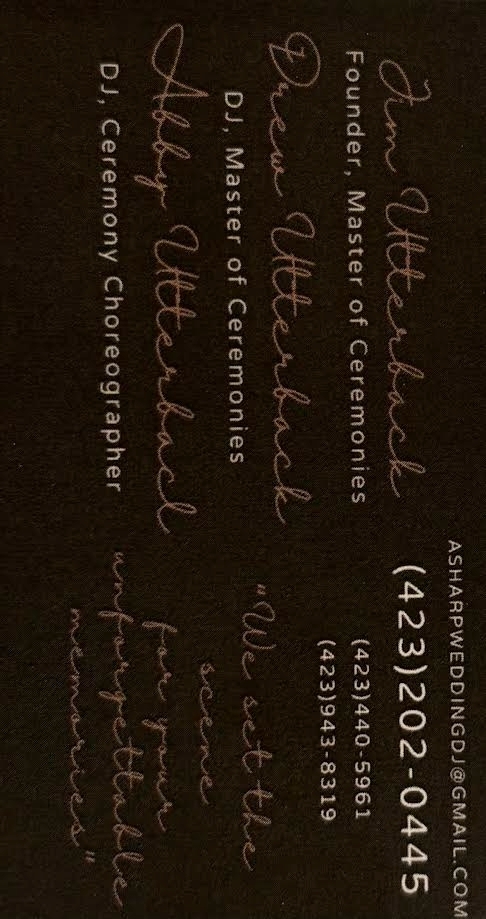 Jim Utterback
Founder, Master of Ceremonies
Drew Utterback
DJ, Master of Ceremonies
Abby Utterback
DJ, Ceremony Choreographer
ASHARPWEDDINGDJ@GMAIL.COM
(423)202-0445
(423)440-5961
(423)943-8319
"We set the
scene
for your
unforgettable
memories"